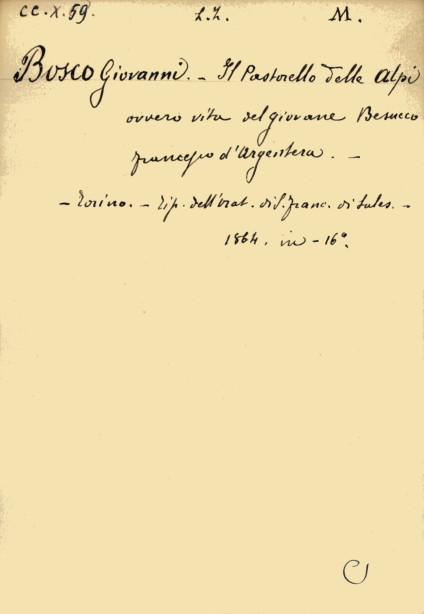 CC.X.59. L.L. M.
Bosco Giovanni. - Il Pastorello delle Alpi
ovvero vita del giovane Besucco
Francesco d'Argentera. -
- Torino. - Tip. dell'Orat. di S. Franc. di Sales. -
1864. in - 16°.